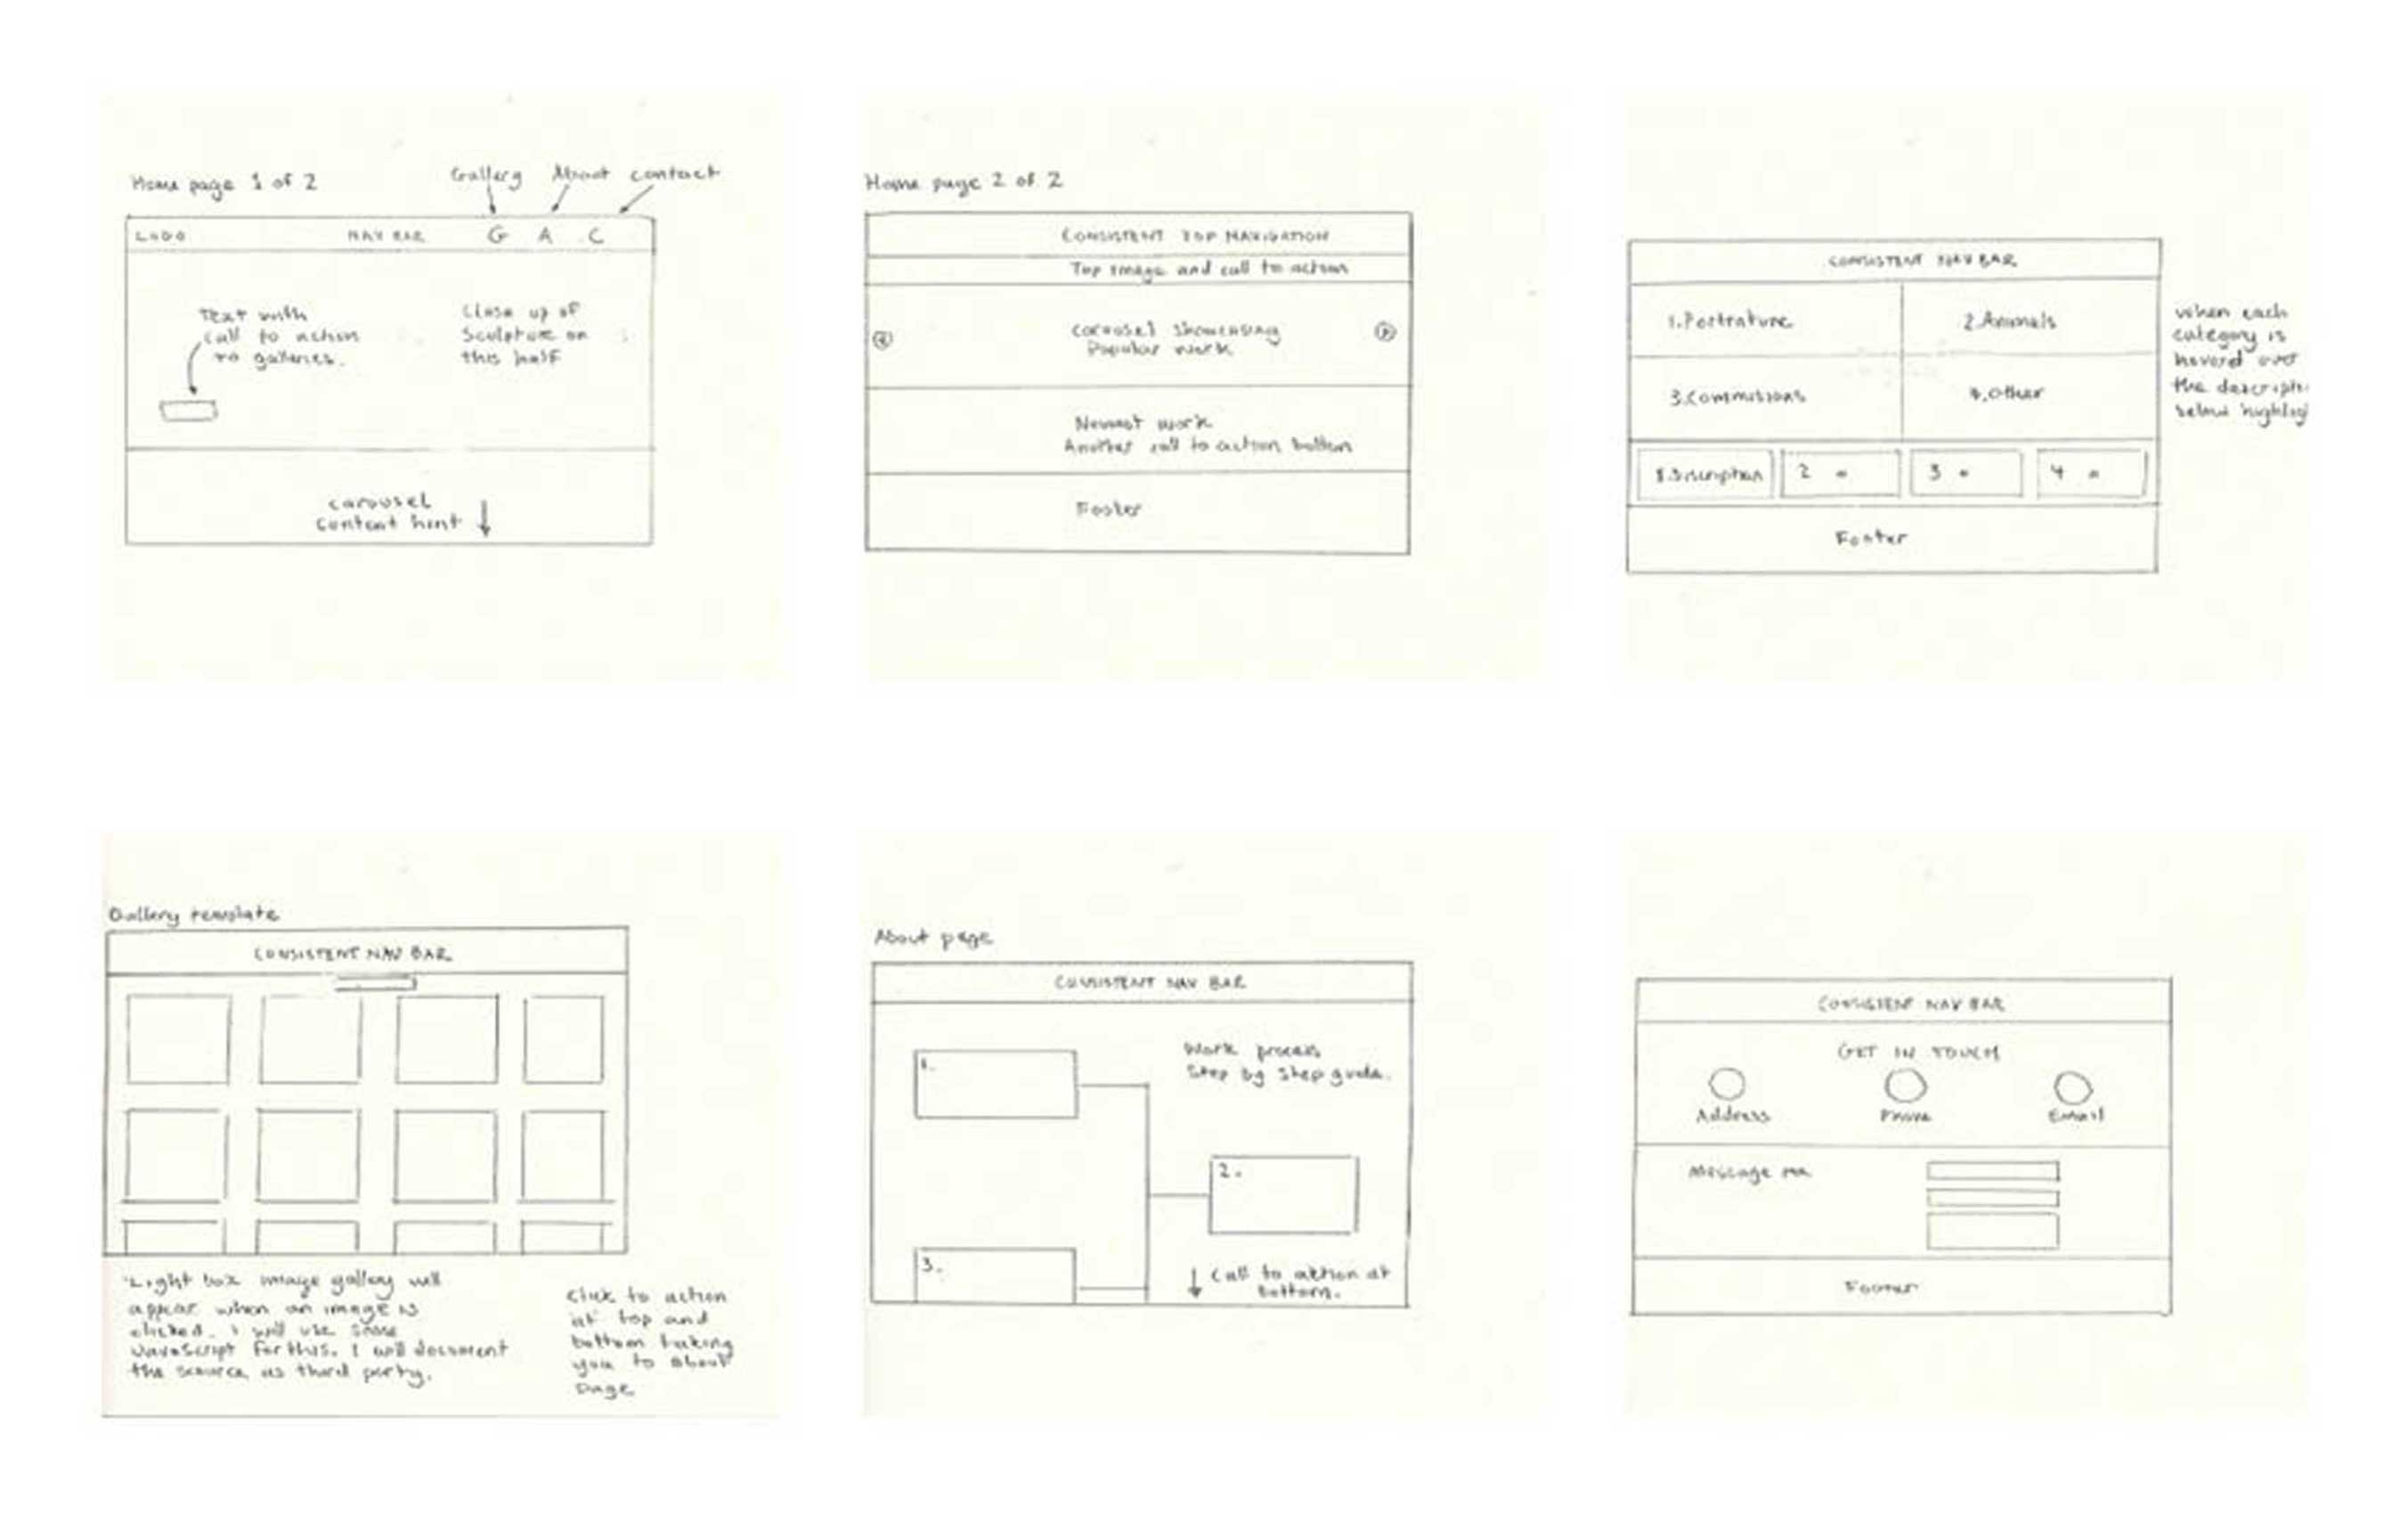 Home page 1 of 2
Gallery About contact
LOGO NAV BAR G A C
Text with
call to action
to galleries.
Close up of
Sculpture on
this half
carousel
content hint
Home page 2 of 2
CONSISTENT TOP NAVIGATION
Top image and call to action
Carousel showcasing
Popular work
Newest work
Another call to action button
Footer
CONSISTENT NAV BAR
1.Portrature
2.Animals
3.Commissions
4.Other
1.Discription
2 "
3 "
4 "
Footer
when each
category is
hoverd over
the descripti
below highlig
Gallery template
CONSISTENT NAV BAR
Light box image gallery will
appear when an image is
clicked. I will use some
JavaScript for this. I will document
the source as third party.
click to action
at top and
bottom taking
you to about
page
About page
CONSISTENT NAV BAR
1.
Work process
Step by step guide.
2.
3.
Call to action at
bottom.
CONSISTENT NAV BAR
GET IN TOUCH
Address
Phone
Email
Message me
Footer